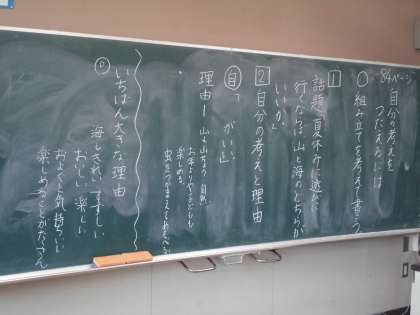 84ページ
自分の考えを
つたえるには
○組み立てを考えて書こう
1
話題 夏休みに遊びに
行くならば山と海のどちらが
いいか。
2 自分の考えと理由
自「 がいい」
理由1 山
自然
楽しめる。
虫をつかまえて
いちばん大きな理由
海 すずしい
おいしい 楽しい
およぐと気持ちいい
楽しめることがたくさん